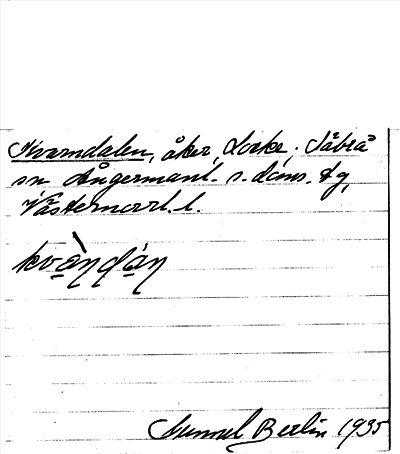 Kvarndalen, åker, Locke. Säbrå
sn Ångermanl. s. döms. tg,
Västernorrl. l.
kvà̱ɳɖá̱ɳ
Samuel Berlin 1935